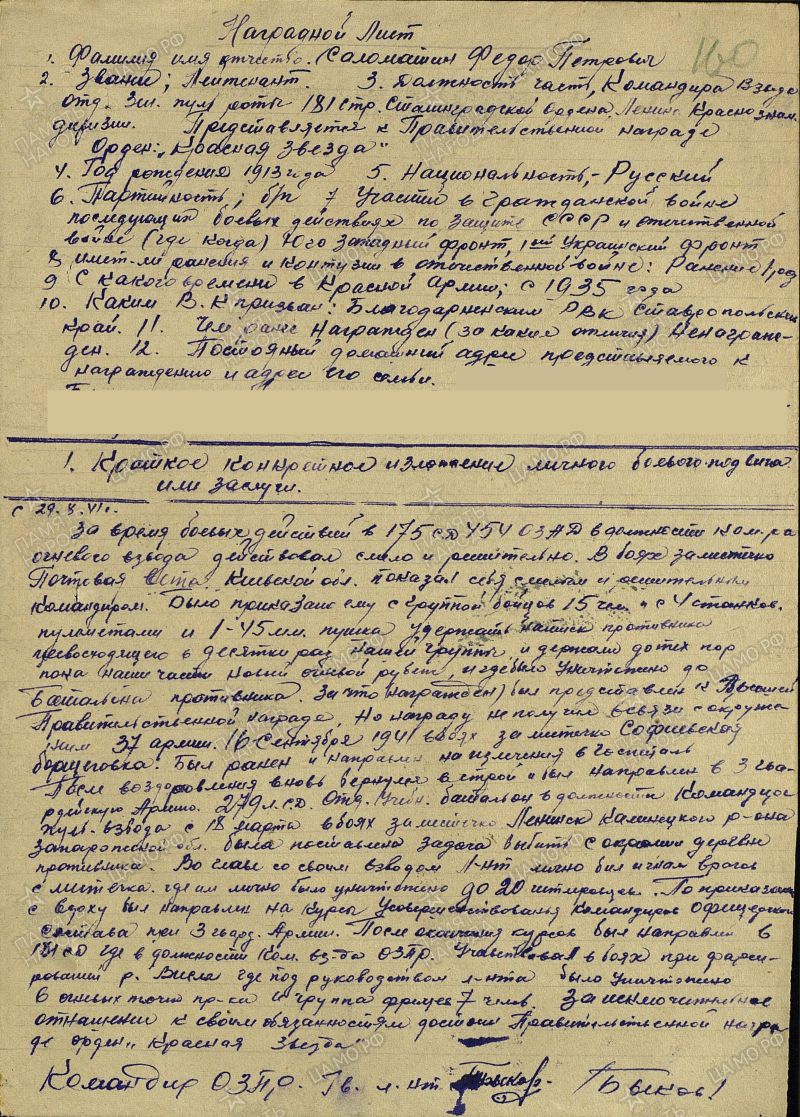 Наградной Лист
160
1. Фамилия имя отчество. Саломатин Федор Петрович
2. Звание; Лейтенант. 3. Должность часть, Командира Взвода
отд. Зен. пул. роты 181 стр. Сталинградской ордена Ленина Краснознам.
дивизии. Представляется к Правительственной награде
Орден: „Красная Звезда"
4. Год рождения 1913 года 5. Национальность, - Русский
6. Партийность; б/п 7 Участие в Гражданской войне
последующих боевых действиях по защите СССР и отечественной
войне (где когда) Юго Западный фронт, 1ый Украинский фронт
8 имеет-ли ранения и контузии в отечественной войне: Ранение 1 раз
9 С какого времени в Красной Армии; с 1935 года
10. Каким В.К призван: Благодарненским РВК Ставропольский
край. 11. Чем ранее Награжден (за какие отличия) Ненагражден
ден. 12. Постояный домашний адрес представляемого к
награждению и адрес его семьи.
1. Краткое конкретное изложение личного боевого подвига
или заслуги.
с 29.8.41г.
За время боевых действий в 175 сд 454 ОЗАД в должности ком-ра
огневого взвода действовал смело и решительно. В боях за местечко
Почтовая Киевской обл. показал себя смелым и решительным
командиром. Было приказано ему с группой бойцов 15 чел. и с 4 станков.
пулеметами и 1-45 мм. пушка удержать натиск противника
превосходящего в десятки раз нашей группы и держали до тех пор
пока наши части новый рубеж, и где было уничтожено до
Батальона противника. За что был представлен к Высшей
Правительственной награде, Но награду не получил в связи с окруже-
нием 37 армии. 16 Сентября 1941 в боях за местечко Софиевская
борщеговка. Был ранен и направлен на излечения в госпиталь
После воздоровления вновь вернулся в строй и был направлен в 3 гва-
рдейскую Армию. 279 л.с.д. Отд. Учебн. батальон в должности Командиром
пуль. взвода с 18 марта в боях за местечко Ленинск Каменецкого р-она
Запарожской обл. была поставлена задача выбить с окраины деревни
противника. Во главе со своим взводом л-нт лично бил и гнал врагов
с местечка. где им лично было уничтожено до 20 гитлеровцев. По приказанию
был направлен на курсы Усовершенствованья Командиров Офицерского
Состава при 3 гвард. Армии. После окончания курсов был направлен в
181 сд где в должности Ком. вз-да ОЗПР. Участвовал в боях при форси-
ровании р. Висла где под руководством л-нта было уничтожено
6 огневых точек пр-ка и группа фрицев 7 челв. За исключительное
отнашении к своим обязанностям достоин Правительственной награ
де орден „Красная Звезда"
Командир ОЗПР. Гв. л-нт Быков!